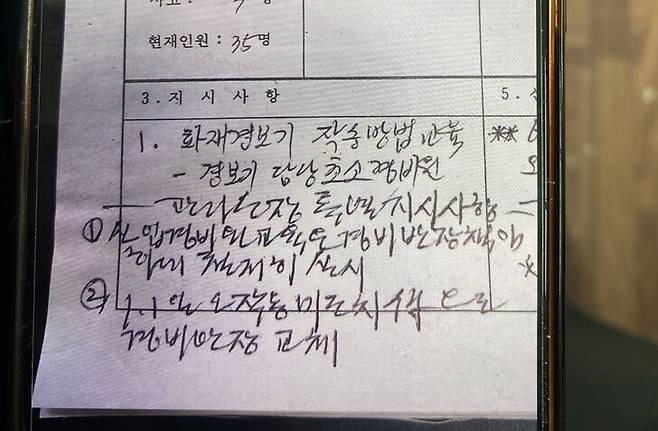 현재인원 : 35명
3. 지 시 사 항
5.
1. 화재경보기 작동방법 교육
- 경보기 담당초소 경비원
- 관리소장 특별지시사항 -
① 신입경비원교육은 경비반장책임
하에 철저히 실시
② 1.1일 오작동 미조치책으로
경비반장 교체